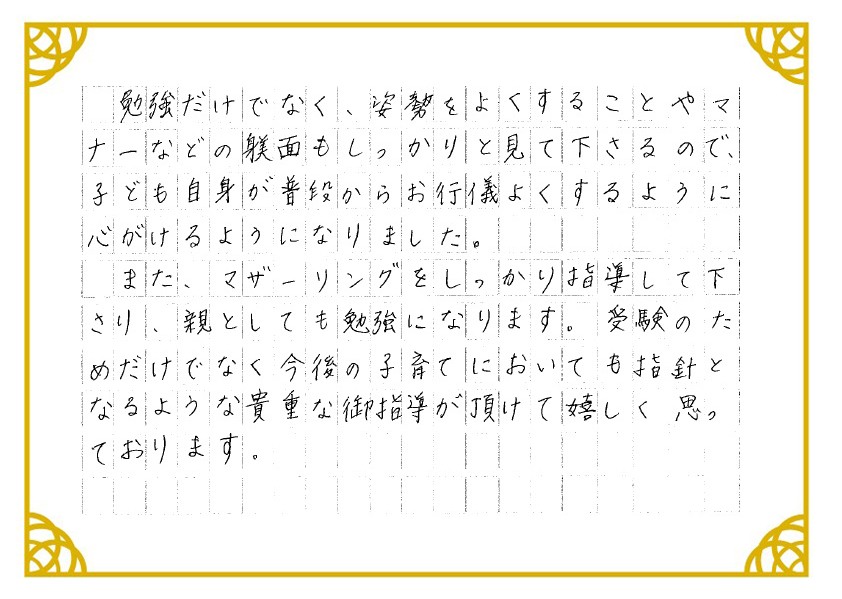 勉強だけでなく、姿勢をよくすることやマ
ナーなどの躾面もしっかりと見て下さるので、
子ども自身が普段からお行儀よくするように
心がけるようになりました。
また、マザーリングをしっかり指導して下
さり、親としても勉強になります。受験のた
めだけでなく今後の子育てにおいても指針と
なるような貴重な御指導が頂けて嬉しく思っ
ております。